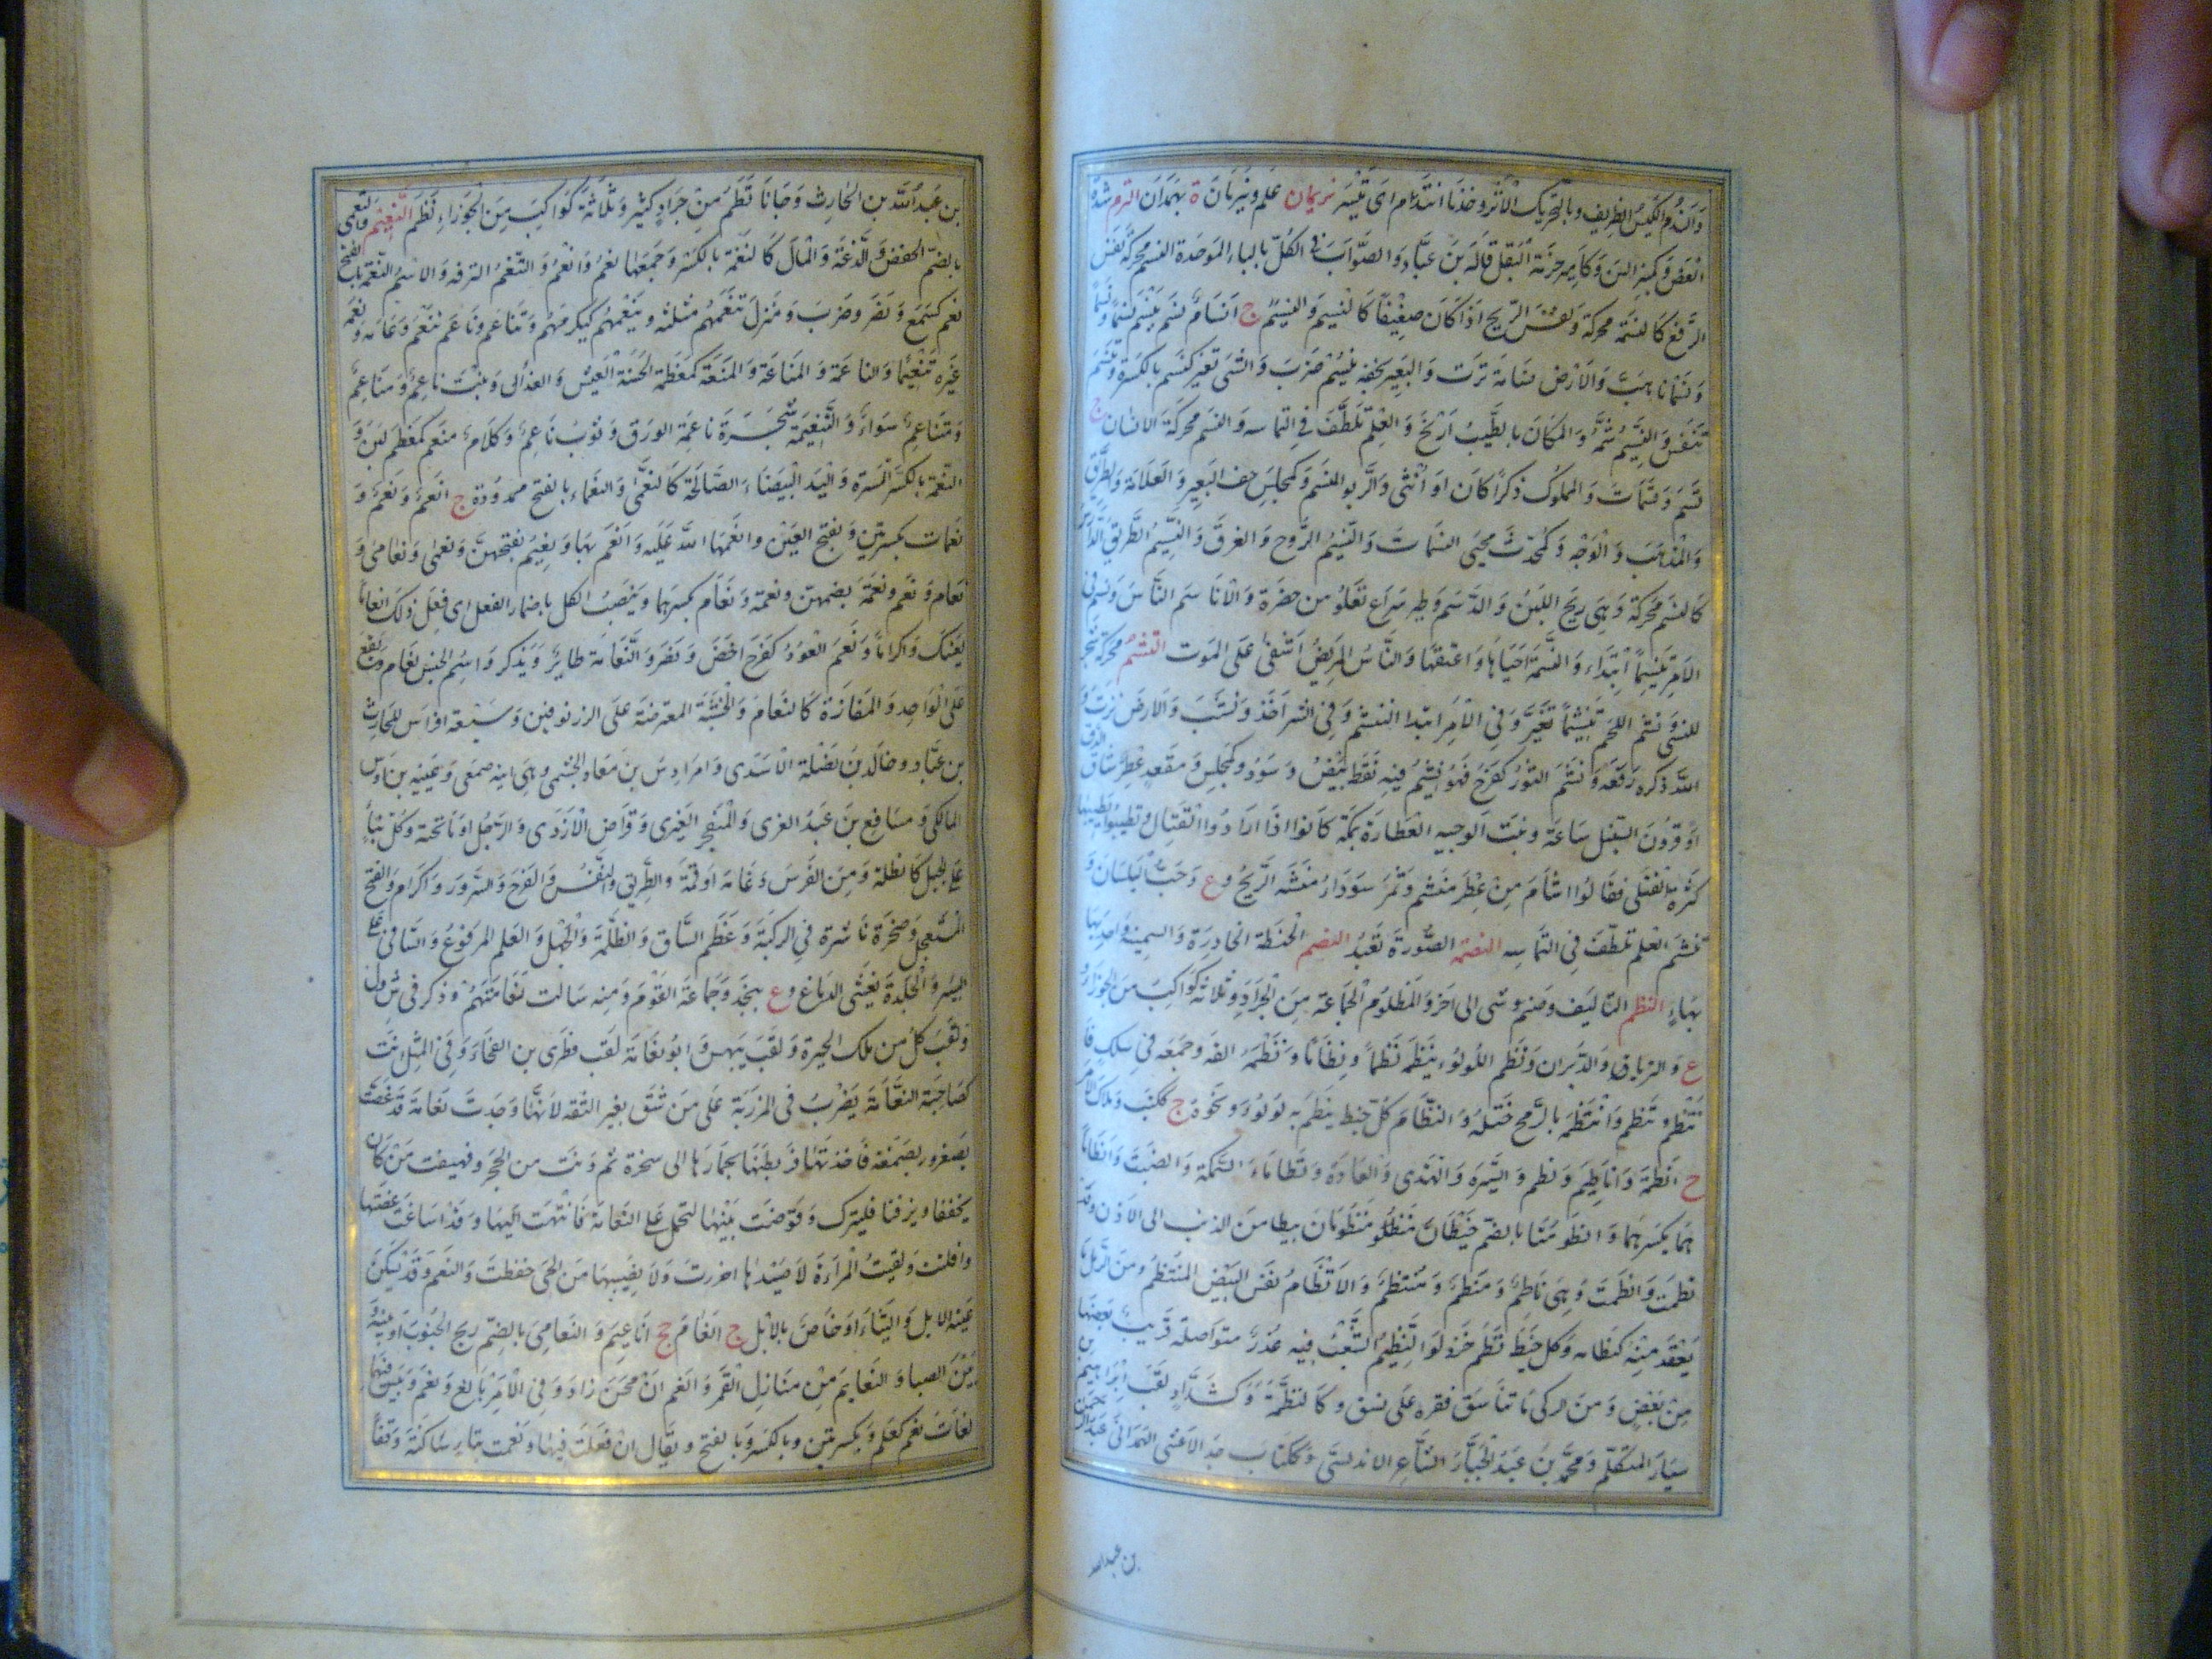 والندم الكيس الظريف وبالتحريك الاثر وخذ ما انتدم اى تيسر نريمان علم ونيرمان ة بهمدان النزم شدة
العض وكمنبر السن وكامير حزمة البقل قاله بن عباد والصواب فى الكل بالباء الموحدة النسم محركة نفس
الرفع كالنسمة محركة ونفس الريح اذا كان ضعيفا كالنسيم والنيسم ج انسام نسم ينسم نسما ونسيما
ونسمانا هبت والارض نسامة نزت والبعير بخفه ينسم ضرب والشى تغير كنسم بالكسرة وتنسم
تنفس والنسيم شمه والمكان بالطيب ارج والعلم تلطف فى التماسه والنسم محركة الانسان ج
نسم ونسمات والمملوك ذكرا كان او انثى والربو المنسم وكمجلس خف البعير والعلامة والطريق
والمذهب والوجه وكمحدث محيى النسمات والنيسم الروح والعرق والنيسم الطريق الدارس
كالنسم محركة وهى ريح اللبن والدسم وطير سراع تعلو من خضرة والاناسم الناس ونسم فى
الامر تنسيما ابتداء والنسمة احياها واعتقها والناس المريض اشفى على الموت النشم محركة شجر
للقسى ونشم اللحم تنشيما تغير وفى الامر ابتدا كنشم وفى الشر اخذ ونشب والارض نزت و
الله ذكره رفعه ونشم الثور كفرح فهو نشم فيه نقط بيض وسود وكمجلس ومقعد عطر شاق الدق
او قرون السنبل ساعة وبنت الوجيه العطارة بمكة كانوا اذا ارادوا القتال وتطيبوا بطيبها
كثرة القتلى فقالوا اشام من عطر منشم وثمر سوداء منشه الريح وع وحب البلسان و
تنشم العلم تلطف فى التماسه النصمة الصورة تعبد النضم الحنطة الحادرة والسمينة واحدتها
بهاء النظم التاليف وضم شى الى اخر والمنظوم الجماعة من الجراد وثلاثة كواكب من الجوزاء و
ع والثريا والدبران ونظم اللولوء ينظم نظما ونظاما ونظمه الفه وجمعه فى سلك فا
نتظم وتنظم وانتظمه بالرمح ختله والنظام كل خيط ينظم به لولو ونحوه ج ككتب وملاك الامر
ج انظمة واناظيم ونظم والسيرة والهدى والعادة ونظاماء السمكة والضب وانظاما
هما بكسرهما وانظومتا بالضم خيطان منظومان بيضا من الذنب الى الاذن وقد
نظمت وانظمت وهى ناظم ومنظم ومنتظم والانظام نفس البيض المنتظم ومن الرمل ما
يعقد منه كنظامه وكل خيط نظم خرزا والنظيم الشعب فيه غدر متواصلة قريب بعضها
من بعض ومن الركى ما تناسق فقره على نسق وكالنظمة وكشداد لقب ابراهيم بن
سيار المتكلم ومحمد بن عبد الجبار الشاعر الاندلسى وككتاب جد الاعشى الهمدانى عبد الرحمن
بن عبد الله
بن عبد الله بن الحارث وجانا نظم من جراد كثير وثلاثة كواكب من الجوزاء نظم النعيم والنعمى
بالضم الخفض والدعة والمال كالنعمة بالكسر وجمعها نعم وانعم والتنعم الترفه والاسم النعمة بالفتح
نعم كسمع ونصر وضرب ومنزل تنعمهم مثلثه وينعمهم كيكرمهم وتناعم وناعم تنعم وناعمه ونعم
غيره تنعيما والناعمة والمناعمة والمنعمة كمعظمة الحسنة العيش والغذا ونبت ناعم ومناعم
ومتناعم سواء والتنعيمة شجرة ناعمة الورق وثوب ناعم وكلام منعم كمعظم لين و
النعمة بالكسر المسرة واليد البيضاء الصالحة كالنعمى والنعماء بالفتح ممدودة ج انعم ونعم و
نعمات بكسرتين وبفتح العين وانعمها الله عليه وانعم بها ونعيم بفتحهن ونعمى ونعامى و
نعام ونعم ونعمة بضمهن ونعمة ونعام بكسرهما وينصب الكل باضمار الفعل اى افعل ذلك انعاما
لعينك واكراما ونعم العود كفرح اخضر ونضر والنعامة طاير ويذكر واسم الجنس نعام وقد يقع
على الواحد والمفازة كالنعام والخشبة المعترضة على الزرنوقين وسبعة افراس للحارث
بن عباد وخالد بن نضلة الاسدى ومرداس بن معاذ الجشمى وهى ابنه صمعى وعيينه بن اوس
المالكى ومسافع بن عبد العزى والمنفجر الغبرى وقراض الازدى والرجل او ناتحة وكل بناء
على الجبل كالظلة ومن الفرس دماغه او فمه والطريق والنفس والفرح والسرور واكرام والفتح
المستعجل وصخرة ناشزة فى الركبة وعظم الساق والظلمة والجهل والعلم المرفوع والساقى على
البئر والجلدة تغشى الدماغ وع بنجد وجماعة القوم ومنه شالت نعامتهم وذكر فى ش ول
ولقب كل من ملك الحيرة ولقب بيهس وابو نعامة لقب قطرى بن الفجاءة وفى المثل انت
كصاحبة النعامة يضرب فى المرزية على من يثق بغير الثقه لانها وجدت نعامة قد غصت
بصعرور بصمغة فاخذتها فربطتها بخمارها الى شجرة ثم دنت من الحى وهتفت من كان
يحفنا ويرفنا فليترك وقوضت بيتها لتحمل على النعامة فانتهت اليها وقد اساغت غصتها
وافلتت وبقيت المراة لا صيدها احرزت ولا نصيبها من الحى حفظت والنعم وقد تسكن
عينه الابل والشاء او خاص بالابل ج انعام جج اناعيم والنعامى بالضم ريح الجنوب او بينه و
بين الصبا والنعايم من منازل القمر وانعم ان يحسن زاد وفى الامر بالغ ونعم وبئس فيهما
لغات نعم كعلم وبكسرتين وبالكسر وبالفتح ويقال ان فعلت فبها ونعمت بتاء ساكنة وقفا